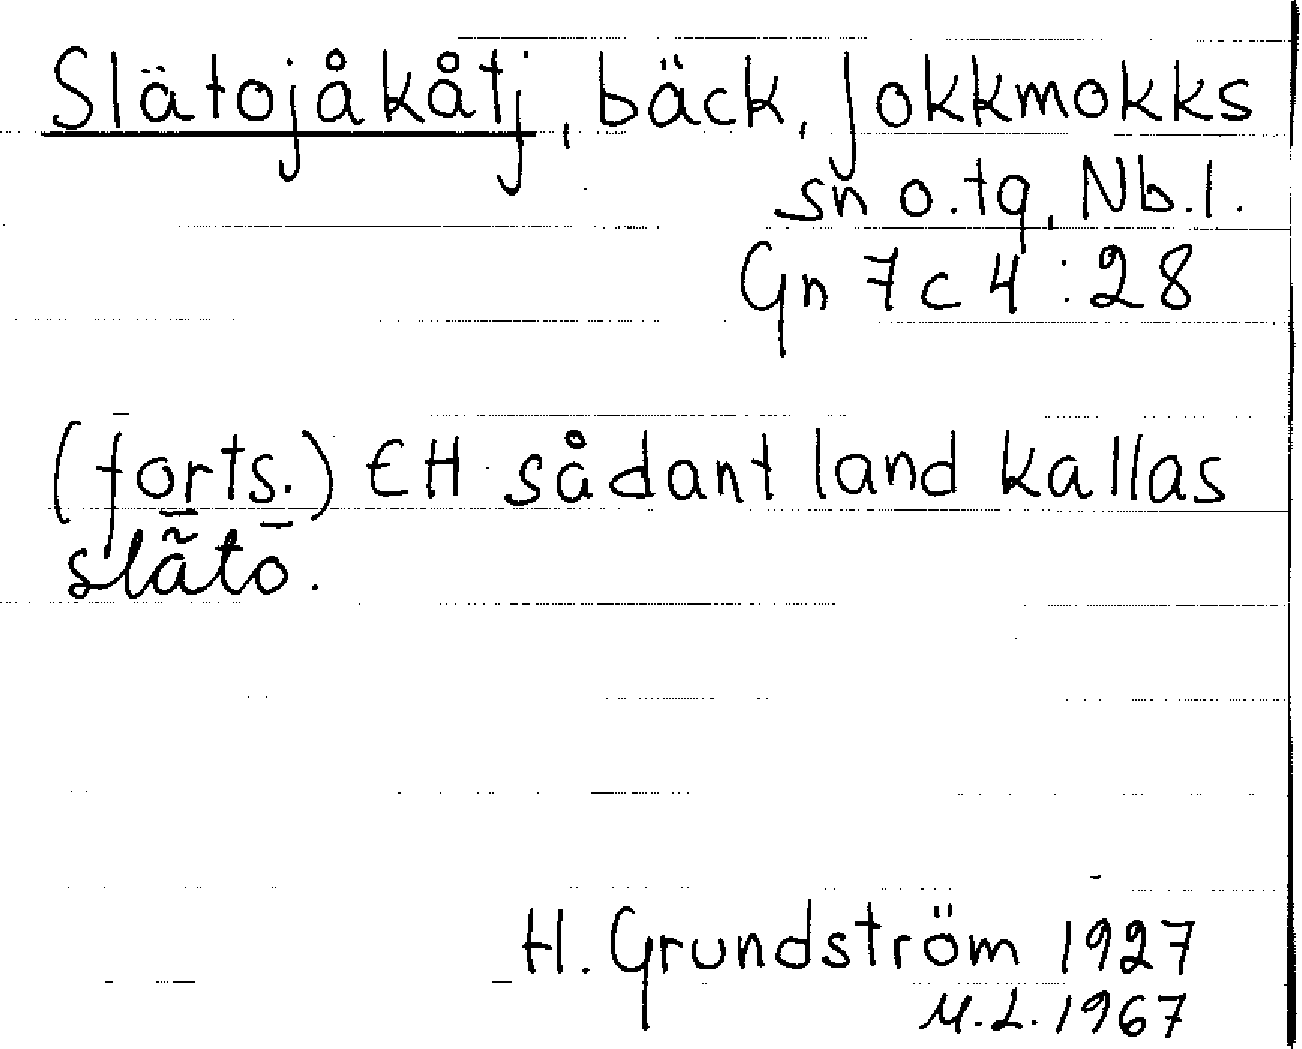 Slätojåkåtj, bäck, Jokkmokks
sn o.tg, Nb.l.
Gn 7c4:28
(forts.) EH sådant land kallas
slā̃tō.
H. Grundström 1927
M.L. 1967